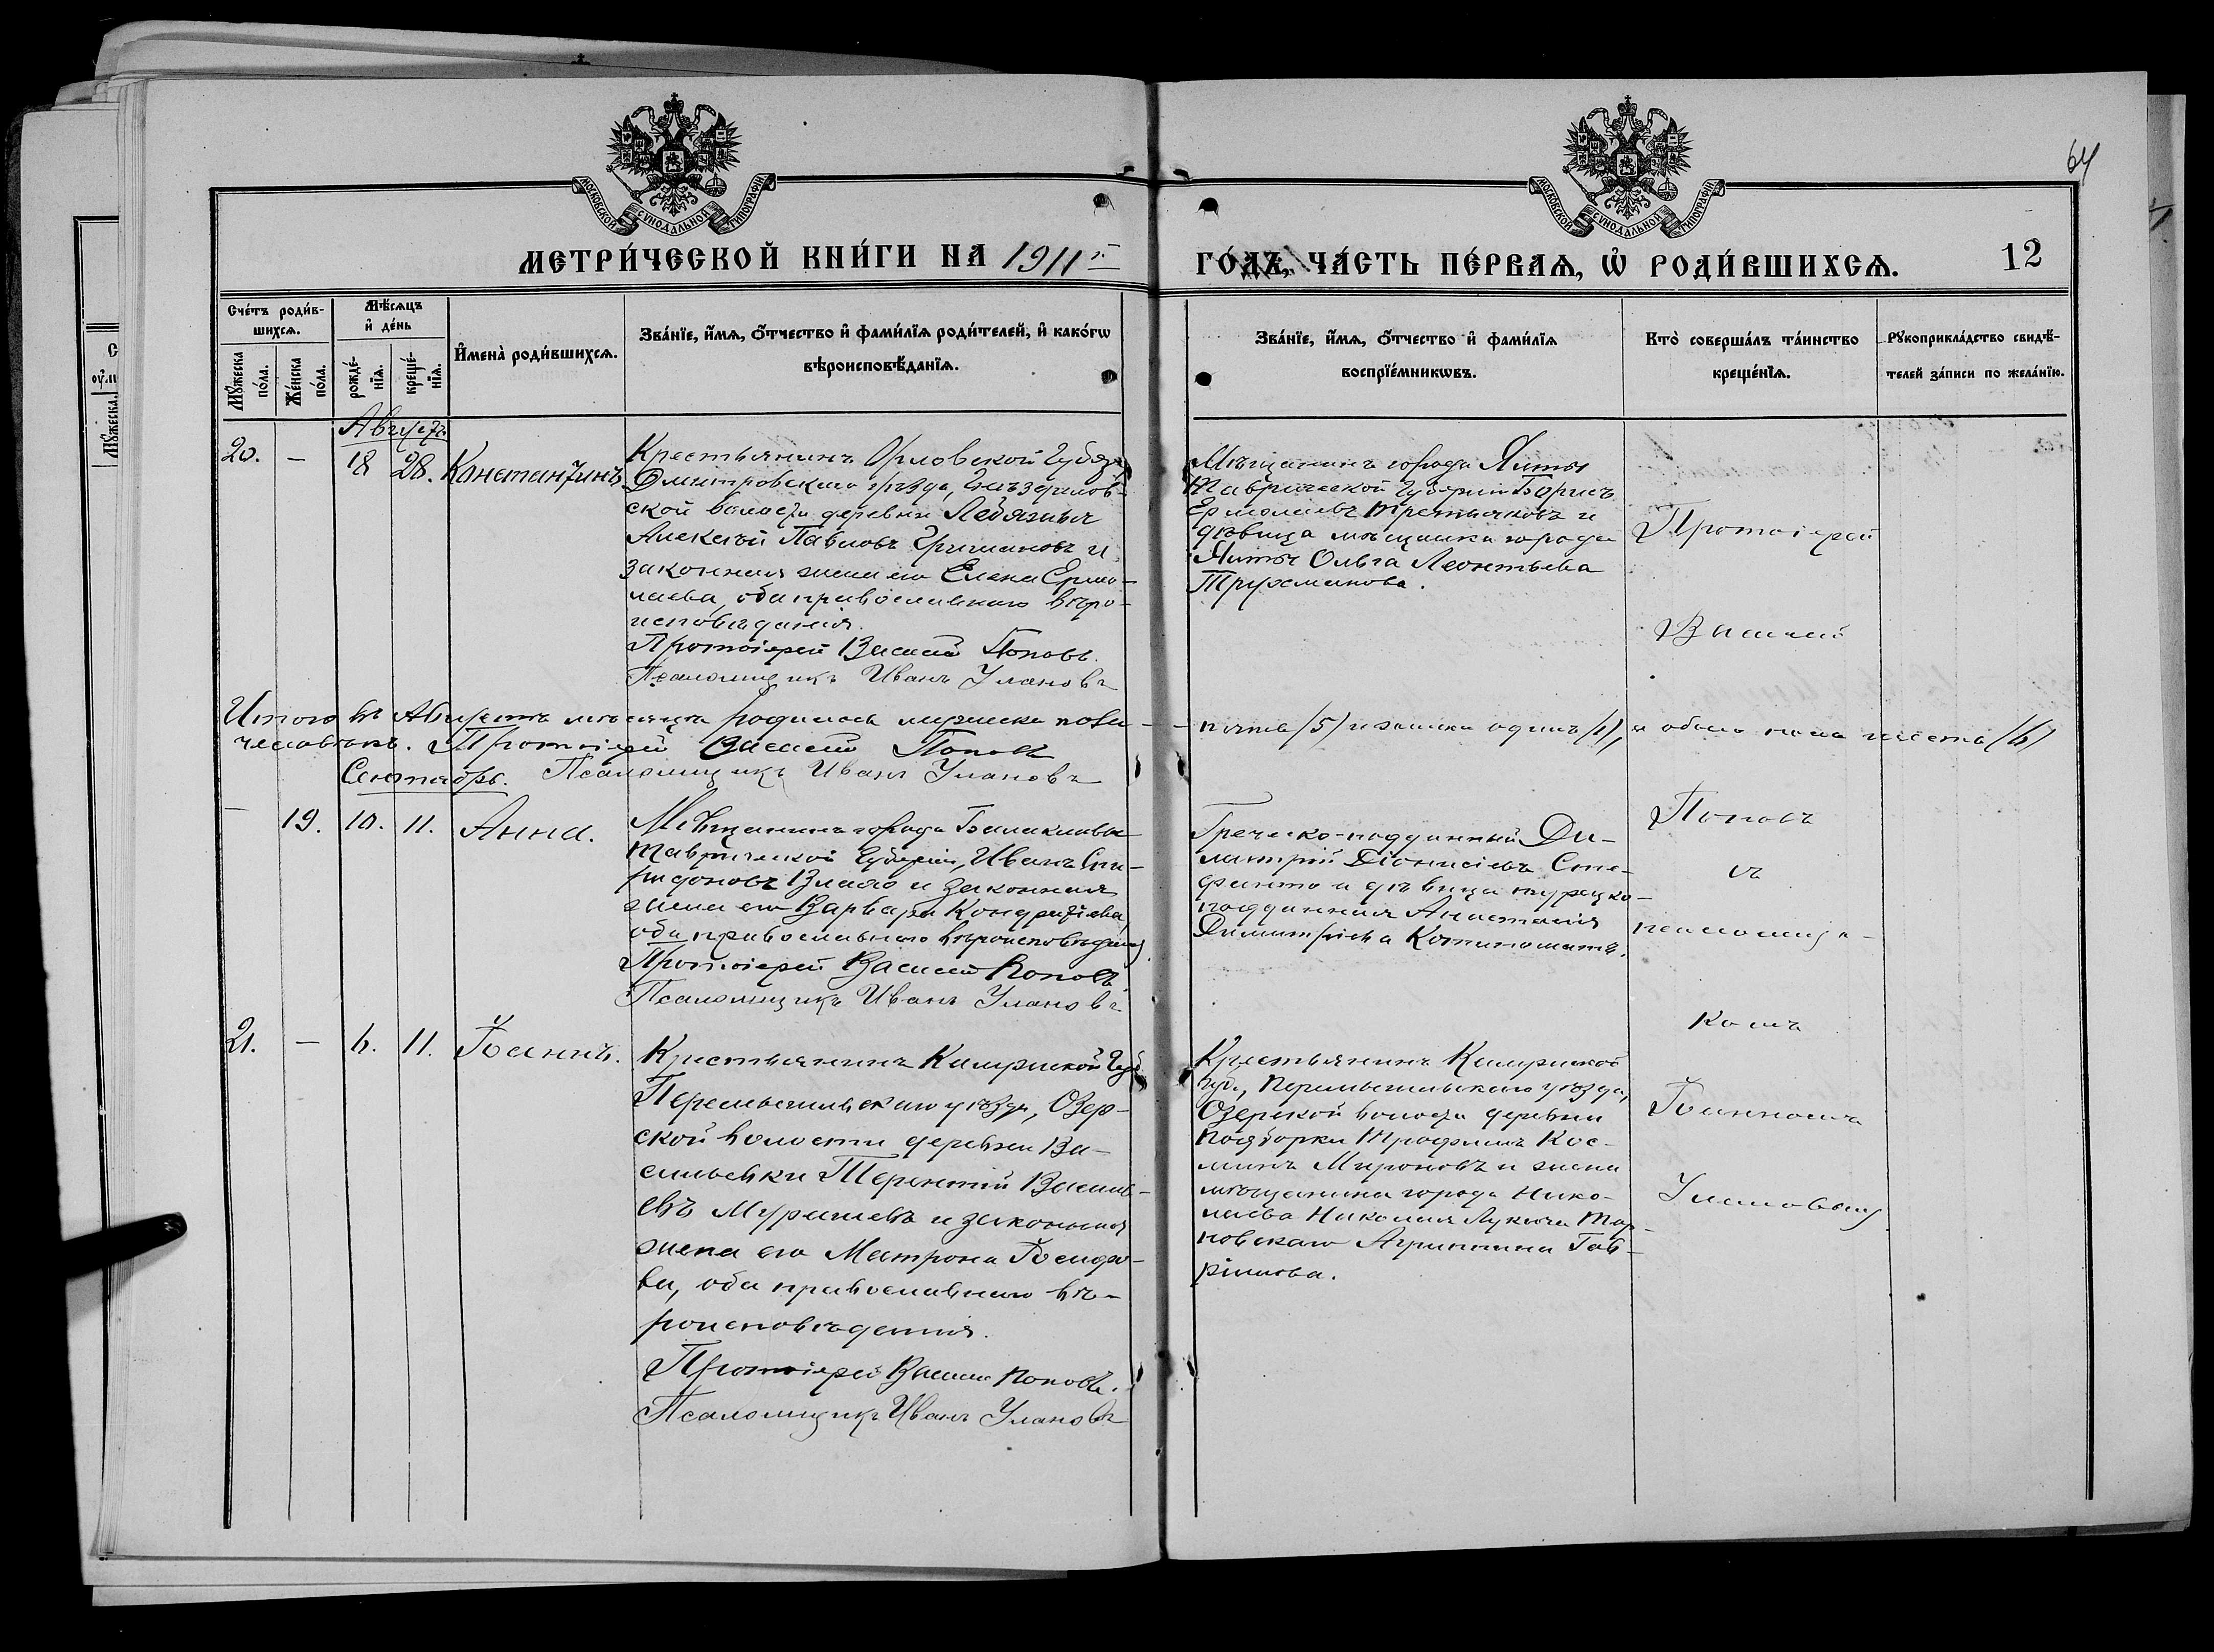 МОСКОВСКОЙ СѴНОДАЛЬНОЙ ТИПОГРАФІИ
МОСКОВСКОЙ СѴНОДАЛЬНОЙ ТИПОГРАФІИ
64
МЕТРИ́ЧЕСКОЙ КНИ́ГИ НА 1911 г.
ГО́ДЪ, ЧА́СТЬ ПЕ́РВАѦ, Ѡ РОДИ́ВШИХСѦ.
12
Сче́тъ роди́в-
шихсѧ.
Мꙋ́жеска по́ла.
Же́нска по́ла.
Мѣ́сѧцъ
и҆ де́нь
рожде́-
нїѧ.
креще́-
нїѧ.
И҆мена̀ роди́вшихсѧ.
Зва́нїе, и҆́мѧ, ѻ҆́тчество и҆ фами́лїѧ роди́телей, и҆ како́гѡ
вѣроисповѣ́данїѧ.
Зва́нїе, и҆́мѧ, ѻ҆́тчество и҆ фами́лїѧ
воспрїе́мникѡвъ.
Кто̀ соверша́лъ та́инство
креще́нїѧ.
Рꙋкоприкла́дство свидѣ́-
телей за́писи по жела́нїю.
Августъ
20. — 18 28. Константинъ
Крестьянинъ Орловской Губерн.
Дмитровскаго уѣзда,
ской волости деревни
Алексѣй Павловъ Гришановъ и
законная жена его Елена Ермо-
лаева, оба православнаго вѣро-
исповѣданія.
Протоіерей Василій Поповъ.
Псаломщикъ Иванъ Улановъ
Мѣщанинъ города Ялты
Таврической Губерніи Борисъ
Ермолаевъ Третьяковъ и
дѣвица мѣщанка города
Ялты Ольга Леонтьева
Труханова.
Протоіерей
Василій
Итого въ Августѣ мѣсяцѣ родилось мужеска пола — пять /5/ и женска одинъ /1/, а обоего пола шесть /6/
человѣкъ. Протоіерей Василій Поповъ
Сентябрь. Псаломщикъ Иванъ Улановъ
— 19. 10. 11. Анна.
Мѣщанинъ города Балаклавы
Таврической Губерніи, Иванъ Спи-
ридоновъ Влахо и законная
жена его Варвара Кондратіева,
оба православнаго вѣроисповѣданія
Протоіерей Василій Поповъ
Псаломщикъ Иванъ Улановъ
Греческо-подданный Ди-
митрій Діонисіевъ Сте-
фанто и дѣвица турецко-
подданная Анастасія
Димитріева
Поповъ
съ
псаломщи-
комъ
21. — 6. 11. Іоаннъ.
Крестьянинъ Калужской Губ.
Перемышльскаго уѣзда, Озер-
ской волости деревни Ва-
сильевки Терентій Василь-
евъ Мурашевъ и законная
жена его Матрона Іосифо-
ва, оба православнаго вѣ-
роисповѣданія.
Протоіерей Василій Поповъ.
Псаломщикъ Иванъ Улановъ
Крестьянинъ Калужской
губ., Перемышльскаго уѣзда,
Озерской волости деревни
Подборки Трофимъ Кос-
минъ Мироновъ и жена
мѣщанина города Нико-
лаева Николая Лукича Тар-
новскаго Агриппина Гав-
ріилова.
Іоанномъ
Улановымъ